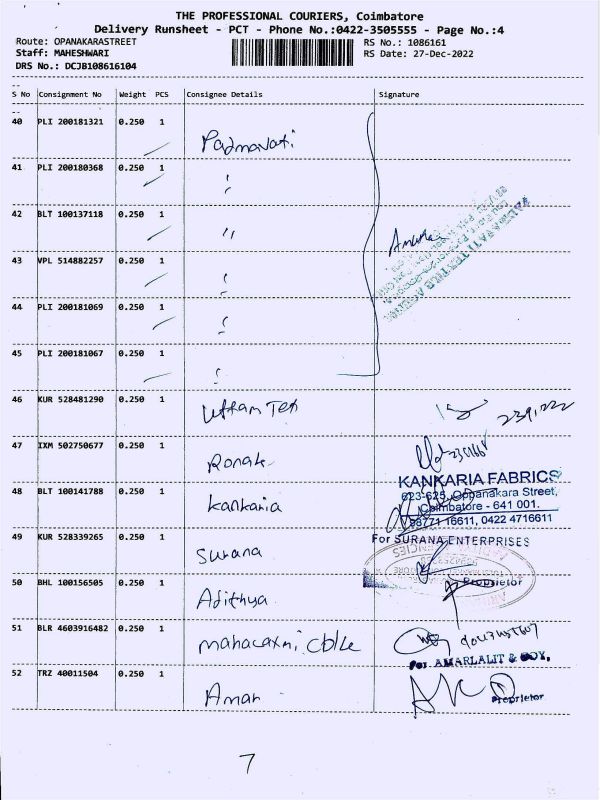 THE PROFESSIONAL COURIERS, Coimbatore
Delivery Runsheet - PCT - Phone No.:0422-3505555 - Page No.:4
Route: OPANAKARASTREET RS No.: 1086161
Staff: MAHESHWARI RS Date: 27-Dec-2022
DRS No.: DCJB108616104
S No Consignment No Weight PCS Consignee Details Signature
40 PLI 200181321 0.250 1 Padmavati
41 PLI 200180368 0.250 1 "
42 BLT 100137118 0.250 1 "
43 VPL 514882257 0.250 1 "
44 PLI 200181069 0.250 1 "
45 PLI 200181067 0.250 1 "
46 KUR 528481290 0.250 1 Uttam Tex
47 IXM 502750677 0.250 1 Ronak
48 BLT 100141788 0.250 1 Kankaria
KANKARIA FABRICS
623-625, Oppanakara Street,
Coimbatore - 641 001.
98771 16611, 0422 4716611
49 KUR 528339265 0.250 1 Surana
For SURANA ENTERPRISES
Proprietor
50 BHL 100156505 0.250 1 Adithya
51 BLR 4603916482 0.250 1 mahalaxmi
For AMARLALIT & COY,
52 TRZ 40011504 0.250 1 Amar
Proprietor
7